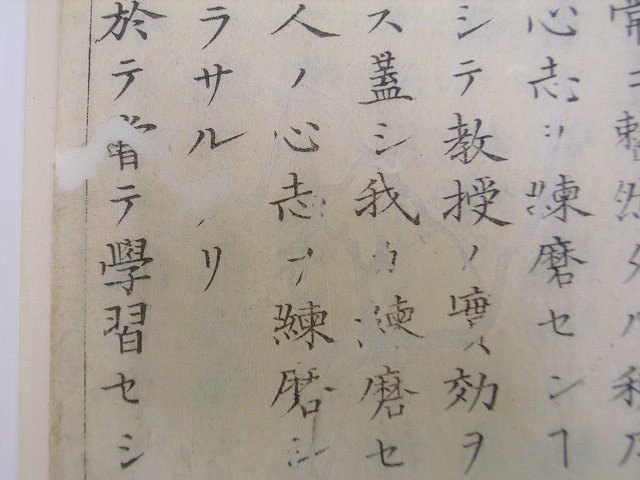 心志ヲ練磨センヿ
シテ教授ノ實効ヲ
ス蓋シ我カ練磨セ
人ノ心志ヲ練磨シ
ラサルナリ
於テ嘗テ學習セシ